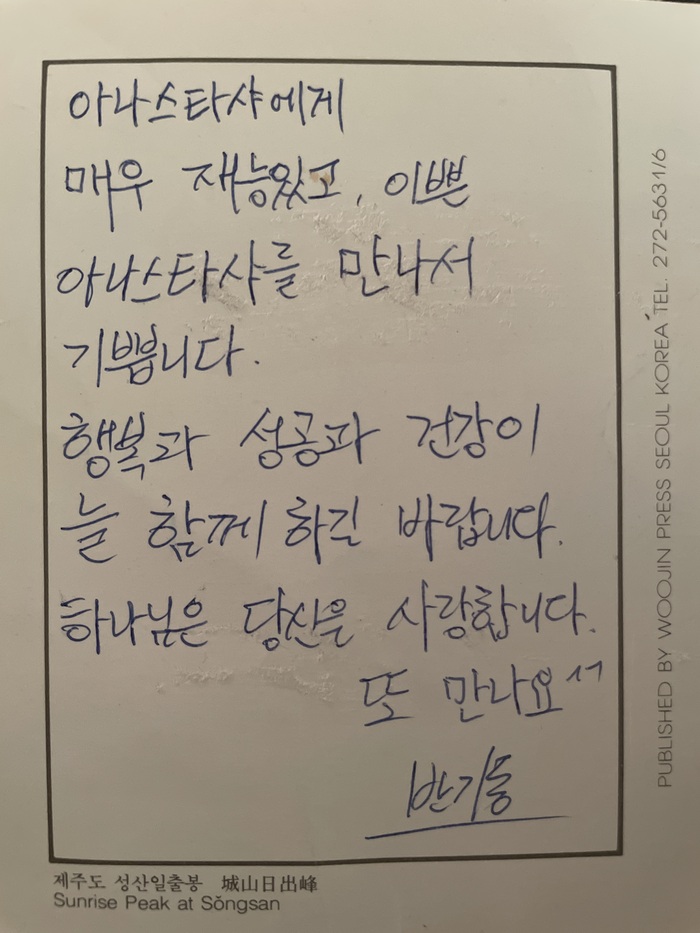 아나스타샤에게
매우 재능있고, 이쁜
아나스타샤를 만나서
기쁩니다.
행복과 성공과 건강이
늘 함께 하길 바랍니다.
하나님은 당신을 사랑합니다.
또 만나요^^
반기동
제주도 성산일출봉 城山日出峰
Sunrise Peak at Sŏngsan
PUBLISHED BY WOOJIN PRESS SEOUL KOREA TEL. 272-5631/6